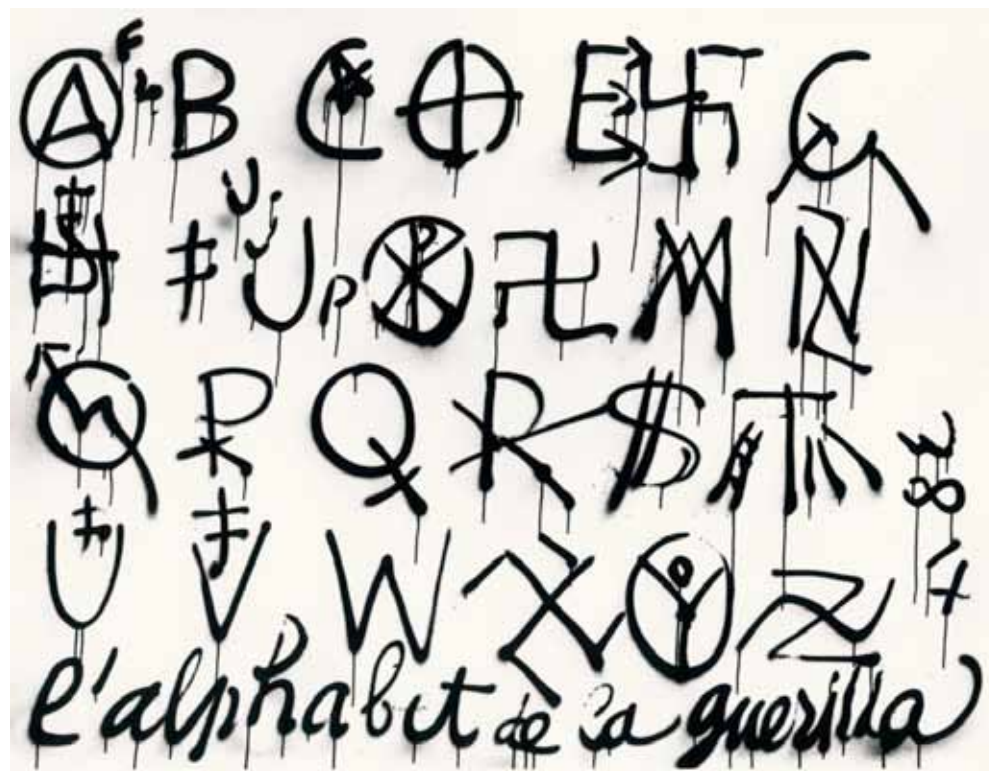 A B C D E F G
H I J K L M N
O P Q R $ T &
U V W X Y Z
l'alphabet de la guerilla